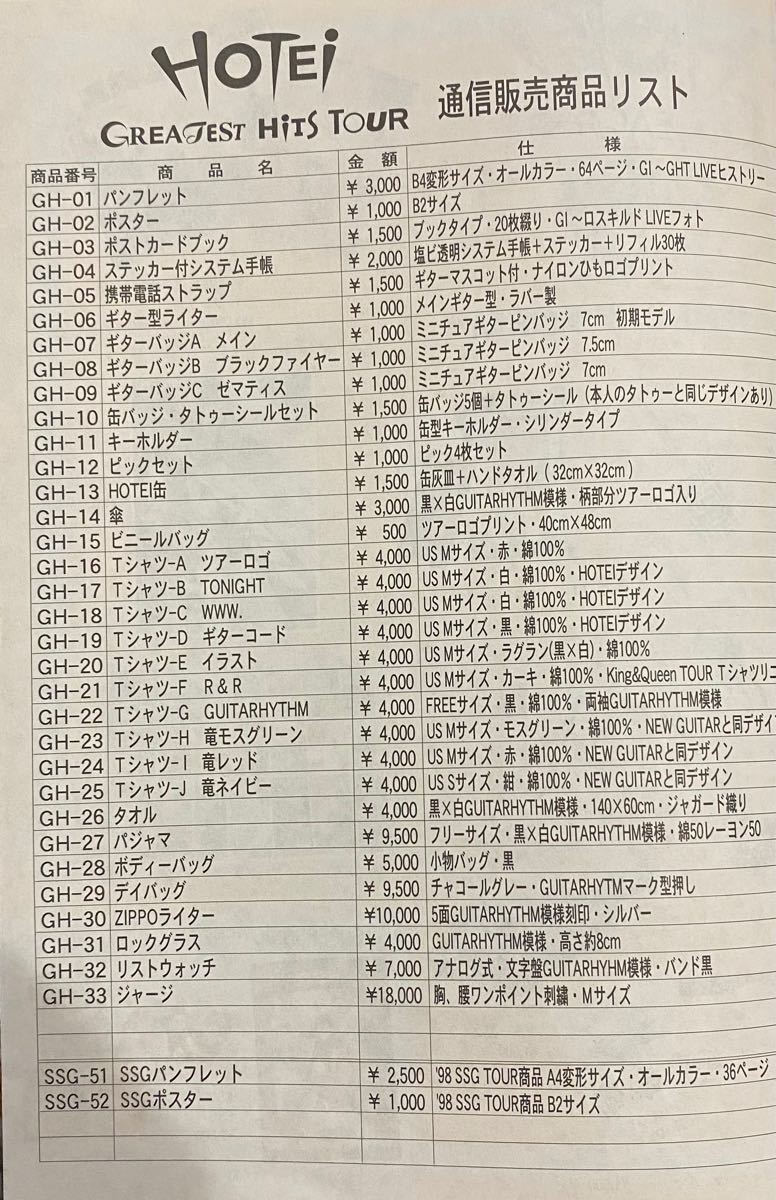 HOTEi
GREATEST HiTS TOUR 通信販売商品リスト
商品番号 商品名 金額 仕様
GH-01 パンフレット ¥3,000 B4変形サイズ・オールカラー・64ページ・GI～GHT LIVEヒストリー
GH-02 ポスター ¥1,000 B2サイズ
GH-03 ポストカードブック ¥1,500 ブックタイプ・20枚綴り・GI～ロスキルド LIVEフォト
GH-04 ステッカー付システム手帳 ¥2,000 塩ビ透明システム手帳＋ステッカー＋リフィル30枚
GH-05 携帯電話ストラップ ¥1,500 ギターマスコット付・ナイロンひもロゴプリント
GH-06 ギター型ライター ¥1,000 メインギター型・ラバー製
GH-07 ギターバッジA メイン ¥1,000 ミニチュアギターピンバッジ 7cm 初期モデル
GH-08 ギターバッジB ブラックファイヤー ¥1,000 ミニチュアギターピンバッジ 7.5cm
GH-09 ギターバッジC ゼマティス ¥1,000 ミニチュアギターピンバッジ 7cm
GH-10 缶バッジ・タトゥーシールセット ¥1,500 缶バッジ5個＋タトゥーシール（本人のタトゥーと同じデザインあり）
GH-11 キーホルダー ¥1,000 缶型キーホルダー・シリンダータイプ
GH-12 ピックセット ¥1,000 ピック4枚セット
GH-13 HOTEI缶 ¥1,500 缶灰皿＋ハンドタオル（32cm×32cm）
GH-14 傘 ¥3,000 黒×白GUITARHYTHM模様・柄部分ツアーロゴ入り
GH-15 ビニールバッグ ¥500 ツアーロゴプリント・40cm×48cm
GH-16 Tシャツ-A ツアーロゴ ¥4,000 US Mサイズ・赤・綿100%
GH-17 Tシャツ-B TONIGHT ¥4,000 US Mサイズ・白・綿100%・HOTEIデザイン
GH-18 Tシャツ-C WWW. ¥4,000 US Mサイズ・白・綿100%・HOTEIデザイン
GH-19 Tシャツ-D ギターコード ¥4,000 US Mサイズ・黒・綿100%・HOTEIデザイン
GH-20 Tシャツ-E イラスト ¥4,000 US Mサイズ・ラグラン(黒×白)・綿100%
GH-21 Tシャツ-F R＆R ¥4,000 US Mサイズ・カーキ・綿100%・King&Queen TOUR Tシャツリニ
GH-22 Tシャツ-G GUITARHYTHM ¥4,000 FREEサイズ・黒・綿100%・両袖GUITARHYTHM模様
GH-23 Tシャツ-H 竜モスグリーン ¥4,000 US Mサイズ・モスグリーン・綿100%・NEW GUITARと同デザイ
GH-24 Tシャツ-I 竜レッド ¥4,000 US Mサイズ・赤・綿100%・NEW GUITARと同デザイン
GH-25 Tシャツ-J 竜ネイビー ¥4,000 US Sサイズ・紺・綿100%・NEW GUITARと同デザイン
GH-26 タオル ¥4,000 黒×白GUITARHYTHM模様・140×60cm・ジャガード織り
GH-27 パジャマ ¥9,500 フリーサイズ・黒×白GUITARHYTHM模様・綿50レーヨン50
GH-28 ボディーバッグ ¥5,000 小物バッグ・黒
GH-29 デイバッグ ¥9,500 チャコールグレー・GUITARHYTMマーク型押し
GH-30 ZIPPOライター ¥10,000 5面GUITARHYTHM模様刻印・シルバー
GH-31 ロックグラス ¥4,000 GUITARHYTHM模様・高さ約8cm
GH-32 リストウォッチ ¥7,000 アナログ式・文字盤GUITARHYHM模様・バンド黒
GH-33 ジャージ ¥18,000 胸、腰ワンポイント刺繍・Mサイズ
SSG-51 SSGパンフレット ¥2,500 '98 SSG TOUR商品 A4変形サイズ・オールカラー・36ページ
SSG-52 SSGポスター ¥1,000 '98 SSG TOUR商品 B2サイズ